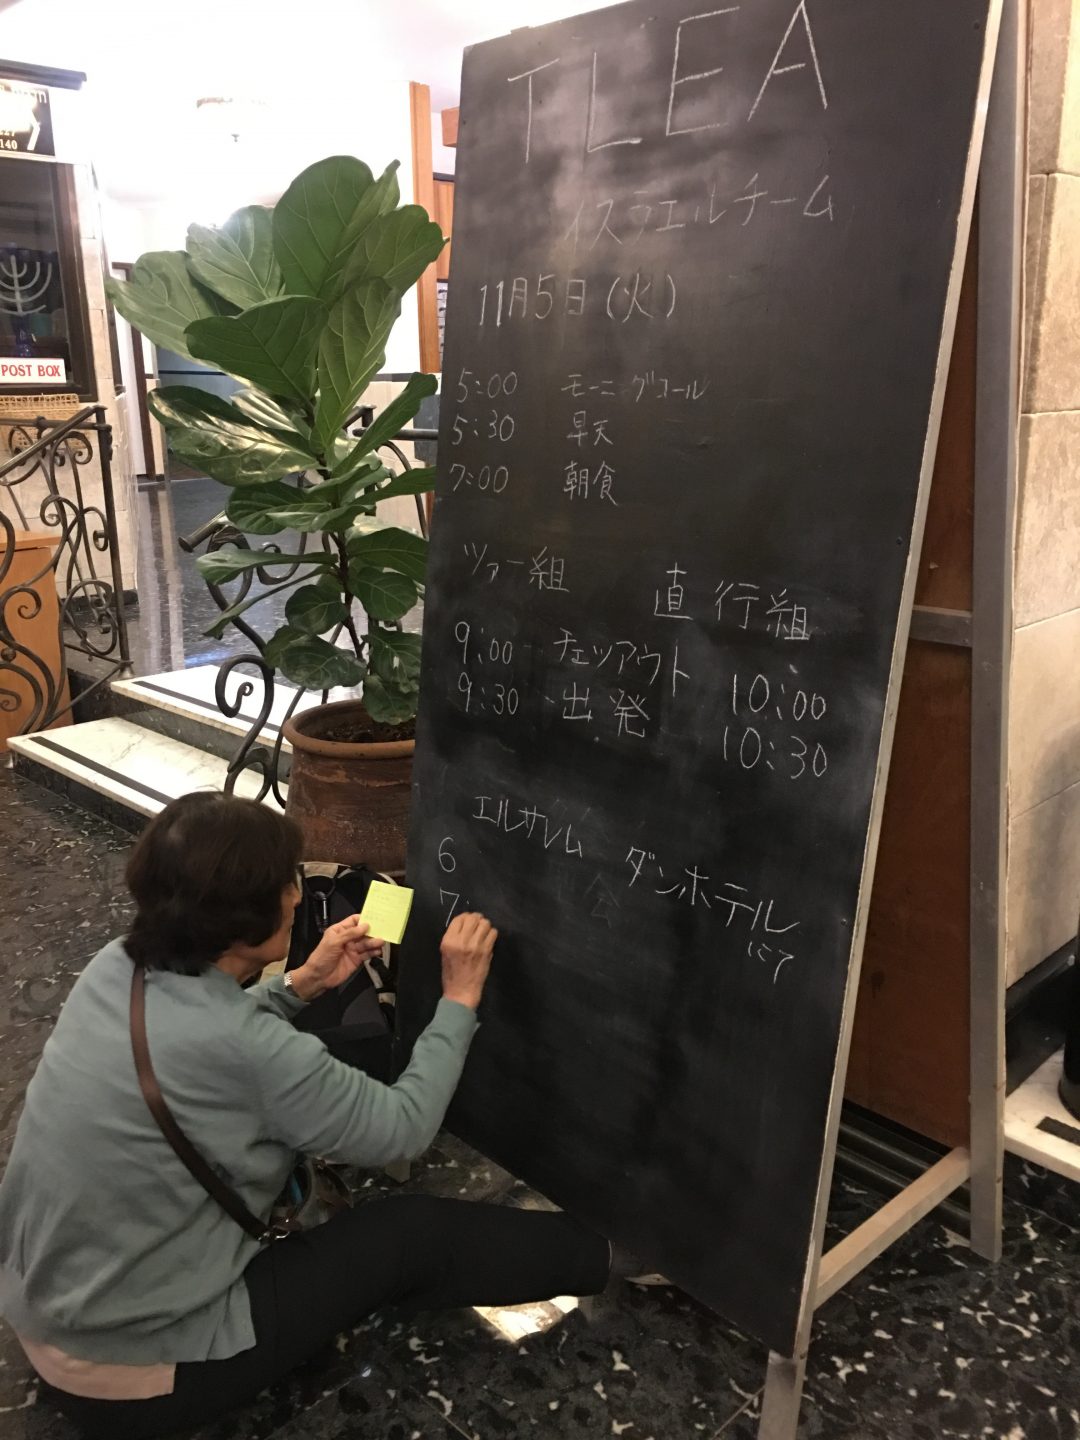 TLEA
イスラエルチーム
11月5日(火)
5:00 モーニングコール
5:30 早天
7:00 朝食
ツァー組 直行組
9:00 チェツアウト 10:00
9:30 出発 10:30
エルサレム ダンホテル
にて
6
7:
POST BOX
140